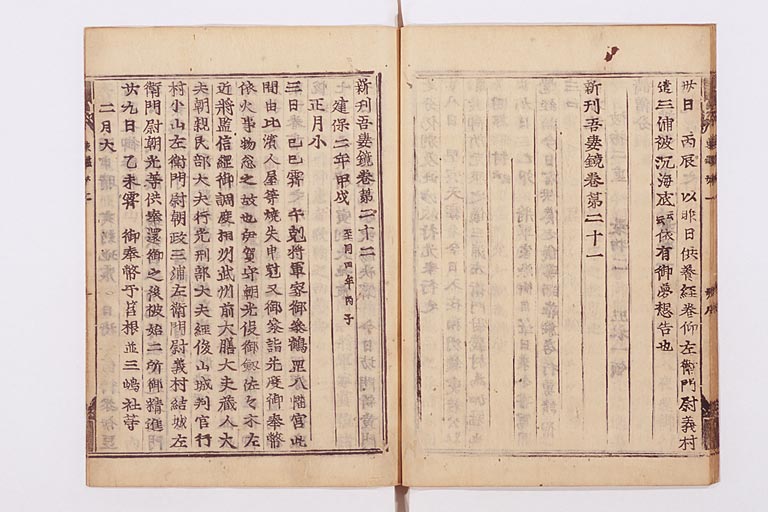 丗日 丙辰 以昨日供養經卷仰左衛門尉義村
遣三浦被沉海底云云依有御夢想告也
新刊吾妻鏡卷第二十一
新刊吾妻鏡卷第二十二
建保二年甲戌 至同四年丙子
正月小
三日 己巳霽 午剋將軍家御參鶴岡八幡宮此
間由比濱人屋等燒失申剋又御參詣先度御奉幣
依火事物忩之故也伊賀守朝光役御劔
近將監信經御調度相州武州前大膳大夫藏人大
夫朝親民部大夫行光刑部大夫經俊山城判官行
村小山左衛門尉朝政三浦左衛門尉義村結城左
衛門尉朝光等供奉還御之後被始二所御精進
廿九日 乙未霽 御奉幣于筥根並三嶋社等
二月大